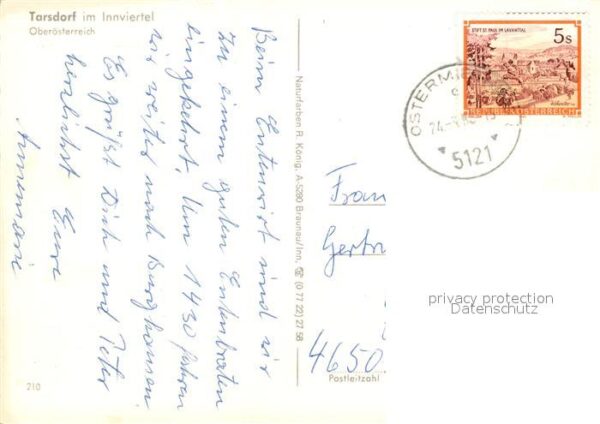 Tarsdorf im Innviertel
Oberösterreich
Beim Entenwirt sind wir
zu einem guten Entenbraten
eingekehrt. Um 1430 fahren
wir weiter nach Burghausen
Es grüßt Dich und Peter
herzlichst Eure
Annemarie
210
Naturfarben R. König, A-5280 Braunau/Inn, (0 77 22) 27 58
STIFT ST. PAUL IM LAVANTTAL
5s
REPUBLIK ÖSTERREICH
OSTERMI
5121
Frau
Gertr
4650
Postleitzahl
privacy protection
Datenschutz